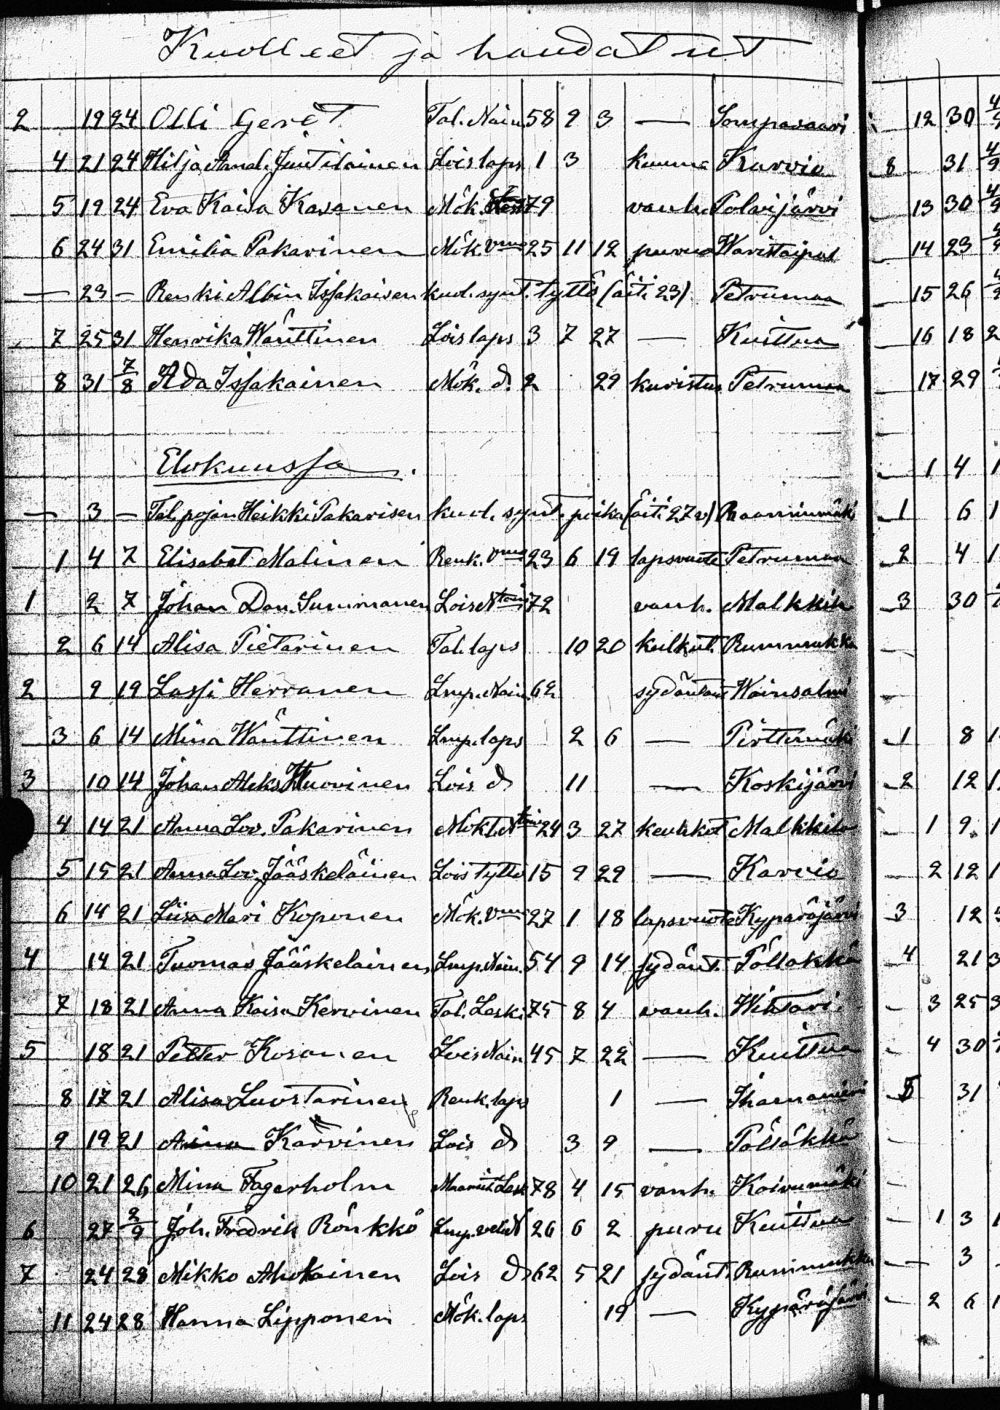 Kuolleet ja haudatut
2 19 24 Olli Geret Tal. Nain 58 9 3 — Sompasaari
4 21 24 Hilja Amal. Juutilainen Lois laps 1 3 kuume Karvio
5 19 24 Eva Kaisa Kasanen Mök. 79 vanh. Polvijärvi
6 24 31 Emilia Pakarinen Mök. vmo 25 11 12 Waristaipal
— 23 — Renki Albin Issakaisen kuol. synt. tyttö (äiti 23). Petrumaa
7 25 31 Henrika Wänttinen Lois laps 3 7 27 — Kuittua
8 31 7/8 Ada Issakainen Mök. d. 2 29 kuristus Petrumaa
Elokuussa.
— 3 — Tal. pojan Heikki Pakarisen kuol. synt. poika (äiti 27 v)
1 4 7 Elisabet Malinen Renk. vmo 23 6 19 lapsvuote Petrumaa
1 2 7 Johan Dan. Summanen Lois 72 vanh. Malkkila
2 6 14 Alisa Pietarinen Tal. laps 10 20 Rummukka
2 9 19 Lassi Herranen Lmp. Nain 62 Woinsalmi
3 6 14 Mina Wänttinen Lmp. laps 2 6 — Pirttimäki
3 10 14 Johan Aleks Huovinen Lois d 11 — Koskijärvi
4 14 21 Anna Lov. Pakarinen 24 3 27 Malkkila
5 15 21 Anna Lov. Jääskeläinen Lois tyttö 15 9 29 — Karvio
6 14 21 Liisa Mari Koponen Mök. vmo 27 1 18 lapsvuote Kypäräjärvi
4 14 21 Tuomas Jääskeläinen Lmp. Nain. 54 9 14 sydänt. Pölläkkä
7 18 21 Anna Kaisa Kervinen Tal. Lesk. 75 8 4 vanh. Wihtari
5 18 21 Petter Kosonen Lois Nain 45 7 22 — Kuittua
8 17 21 Alisa Luostarinen Renk. laps 1 — Ihamaniemi
9 19 21 Karvinen Lois d 3 9 — Pölläkkä
10 21 26 Mina Fagerholm Lesk 78 4 15 vanh. Koivumäki
6 27 2/9 Joh. Fredrik Rönkkö 26 6 2 puru Kuittua
7 24 28 Mikko Ahokainen Lois d 62 5 21 sydänt. Rummukka
11 24 28 Hanna Lipponen Mök. laps 19 — Kypäräjärvi
12 30
8 31
13 30
14 23
15 26
16 18
17 29
1 4
1 6
2 4
3 30
1 8
2 12
1 9
2 12
3 12
4 21
3 25
4 30
5 31
1 3
3
2 6